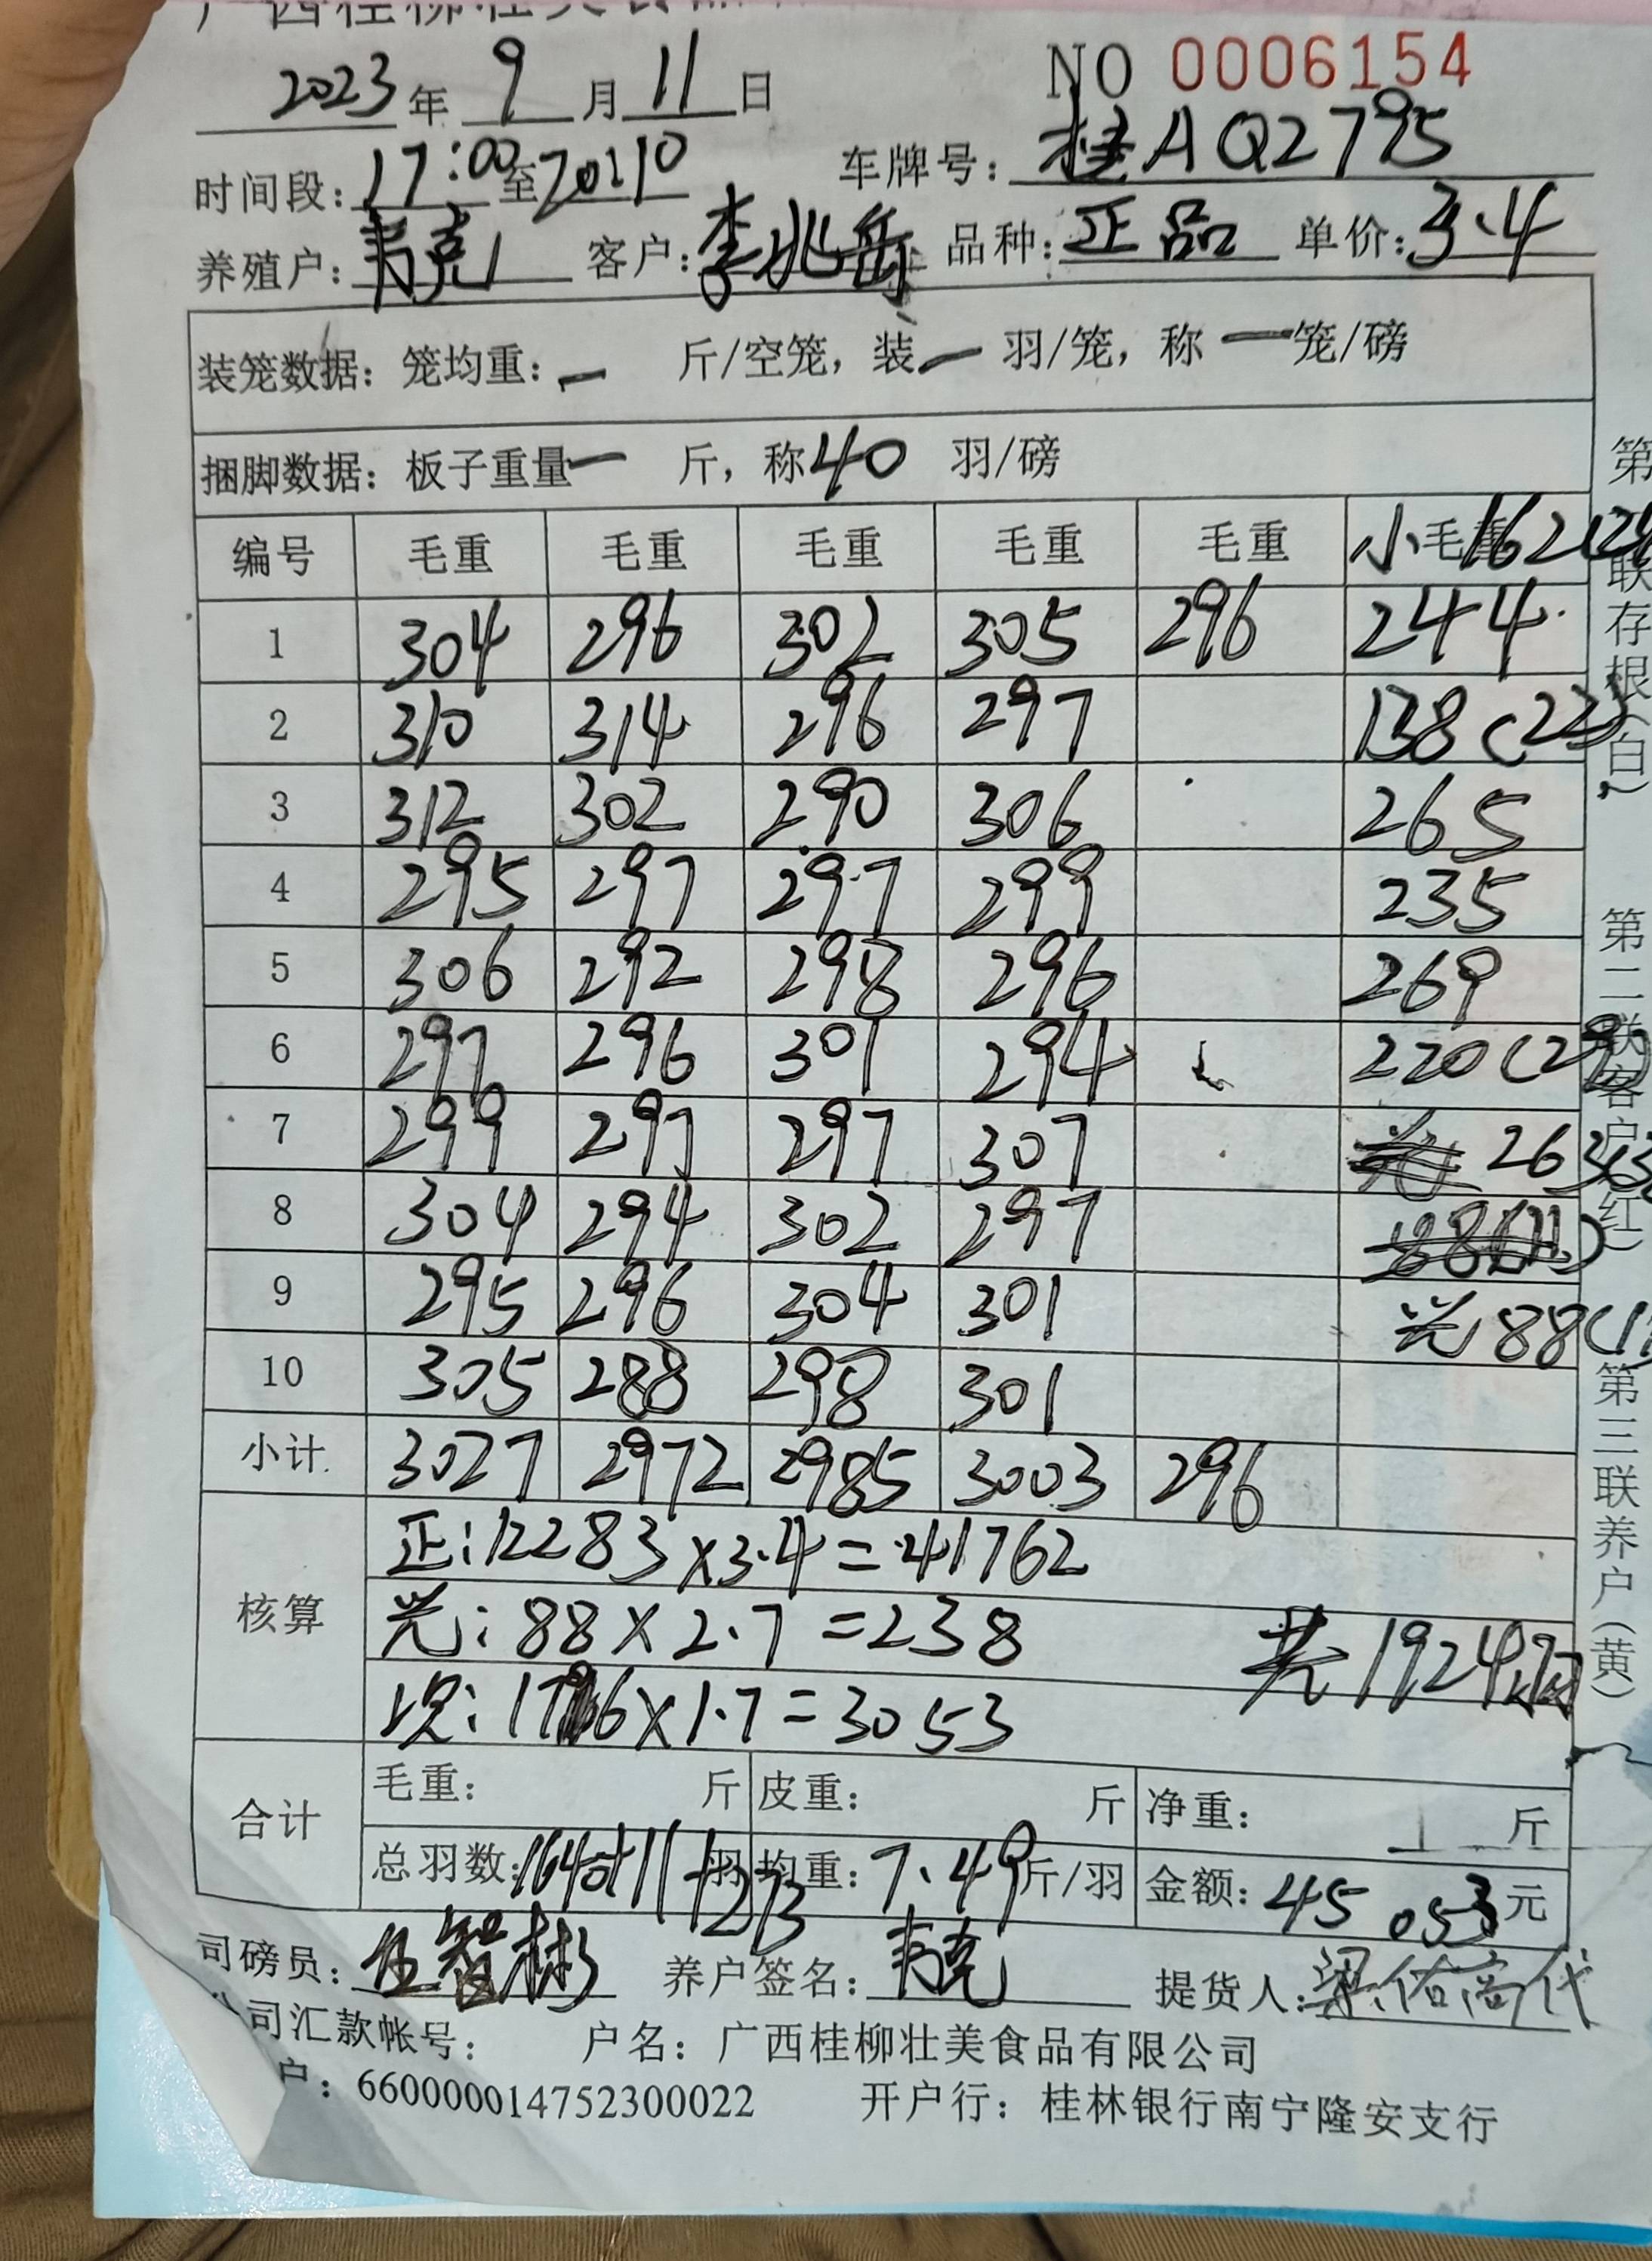 广西桂柳壮美食品
2023年 9月 11日 NO 0006154
时间段: 17:00至20:10 车牌号: 桂AQ2795
养殖户: 韦克 客户: 李兆岳 品种: 正品 单价: 3.4
装笼数据: 笼均重: — 斤/空笼, 装 — 羽/笼, 称 — 笼/磅
捆脚数据: 板子重量 — 斤, 称 40 羽/磅
编号 毛重 毛重 毛重 毛重 毛重 小毛重 162
1 304 296 302 305 296 244
2 310 314 296 297 138(22)
3 312 302 290 306 265
4 295 297 297 299 235
5 306 292 298 296 269
6 297 296 301 294 220
7 299 297 297 307 263
8 304 294 302 297
9 295 296 304 301 光 88
10 305 288 298 301
小计 3027 2972 2985 3003 296
核算 正: 12283×3.4=41762
光: 88×2.7=238 共1924羽
次: 1796×1.7=3053
合计 毛重: 斤 皮重: 斤 净重: 斤
总羽数: 1640+11+273 羽 均重: 7.49斤/羽 金额: 45053元
司磅员: 智彬 养户签名: 韦克 提货人: 梁佑高代
公司汇款帐号: 户名: 广西桂柳壮美食品有限公司
户: 660000014752300022 开户行: 桂林银行南宁隆安支行
第一联存根(白)
第二联客户(红)
第三联养户(黄)